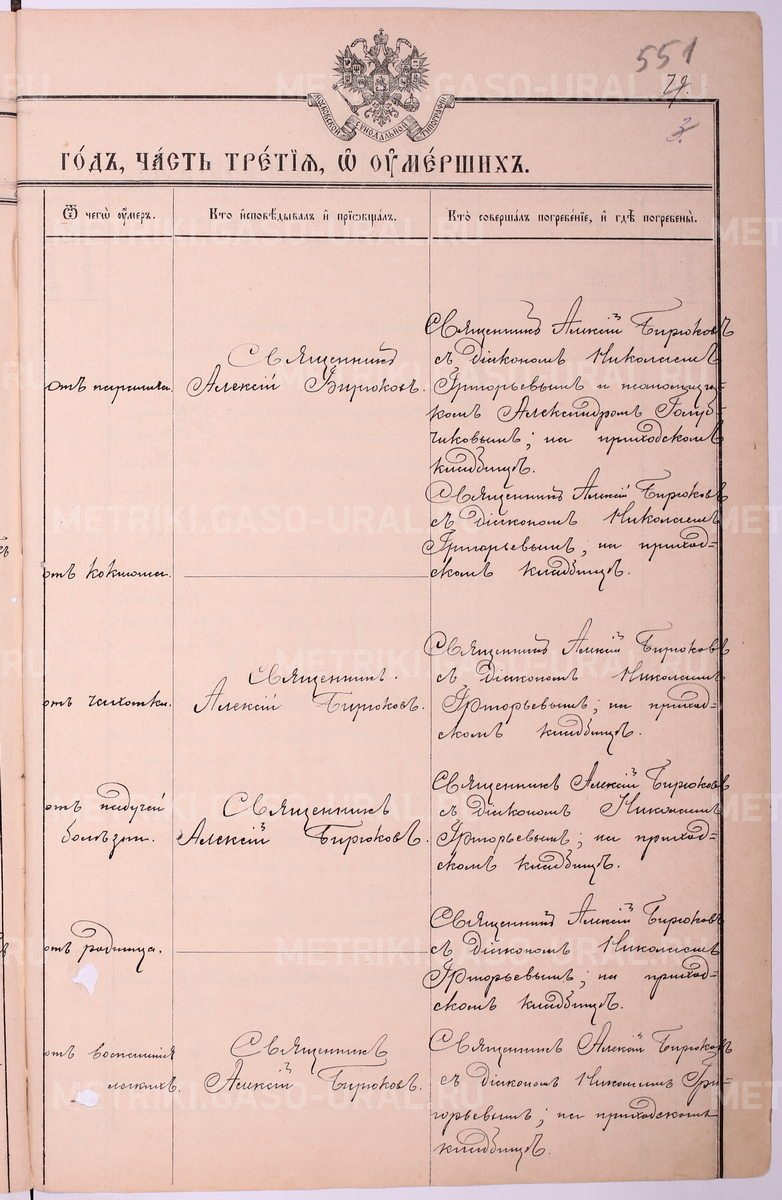 551
79.
3.
МОСКОВСКОЙ СѴНОДАЛЬНОЙ ТИПОГРАФІИ
ГО́ДЪ, ЧА́СТЬ ТРЕ́ТІѦ, Ѡ҆ ОУ҆МЕ́РШИХЪ.
Ѿ чегѡ̀ ᲂу҆́меръ.
Кто̀ и҆сповѣ́дывалъ и҆ прїѡбща́лъ.
Кто̀ соверша́лъ погребе́нїе, и҆ гдѣ̀ погребены̀.
отъ паралича.
Священникъ
Алексій Бирюковъ.
Священникъ Алексій Бирюковъ
съ діакономъ Николаемъ
Григорьевымъ и псаломщи-
комъ Александромъ Голуб-
чиковымъ; на приходскомъ
кладбищѣ.
отъ коклюша.
Священникъ Алексій Бирюковъ
съ діакономъ Николаемъ
Григорьевымъ; на приход=
скомъ кладбищѣ.
отъ чахотки.
Священникъ.
Алексій Бирюковъ.
Священникъ Алексій Бирюковъ
съ діакономъ Николаемъ
Григорьевымъ; на приход=
скомъ кладбищѣ.
отъ падучей
болѣзни.
Священникъ
Алексій Бирюковъ.
Священникъ Алексій Бирюковъ
съ діакономъ Николаемъ
Григорьевымъ; на приход=
скомъ кладбищѣ.
отъ родимца.
Священникъ Алексій Бирюковъ
съ діакономъ Николаемъ
Григорьевымъ; на приход=
скомъ кладбищѣ.
отъ воспаленія
легкихъ.
Священникъ
Алексій Бирюковъ.
Священникъ Алексій Бирюковъ
съ діакономъ Николаемъ Гри-
горьевымъ; на приходскомъ
кладбищѣ.
METRIKI.GASO-URAL.RU